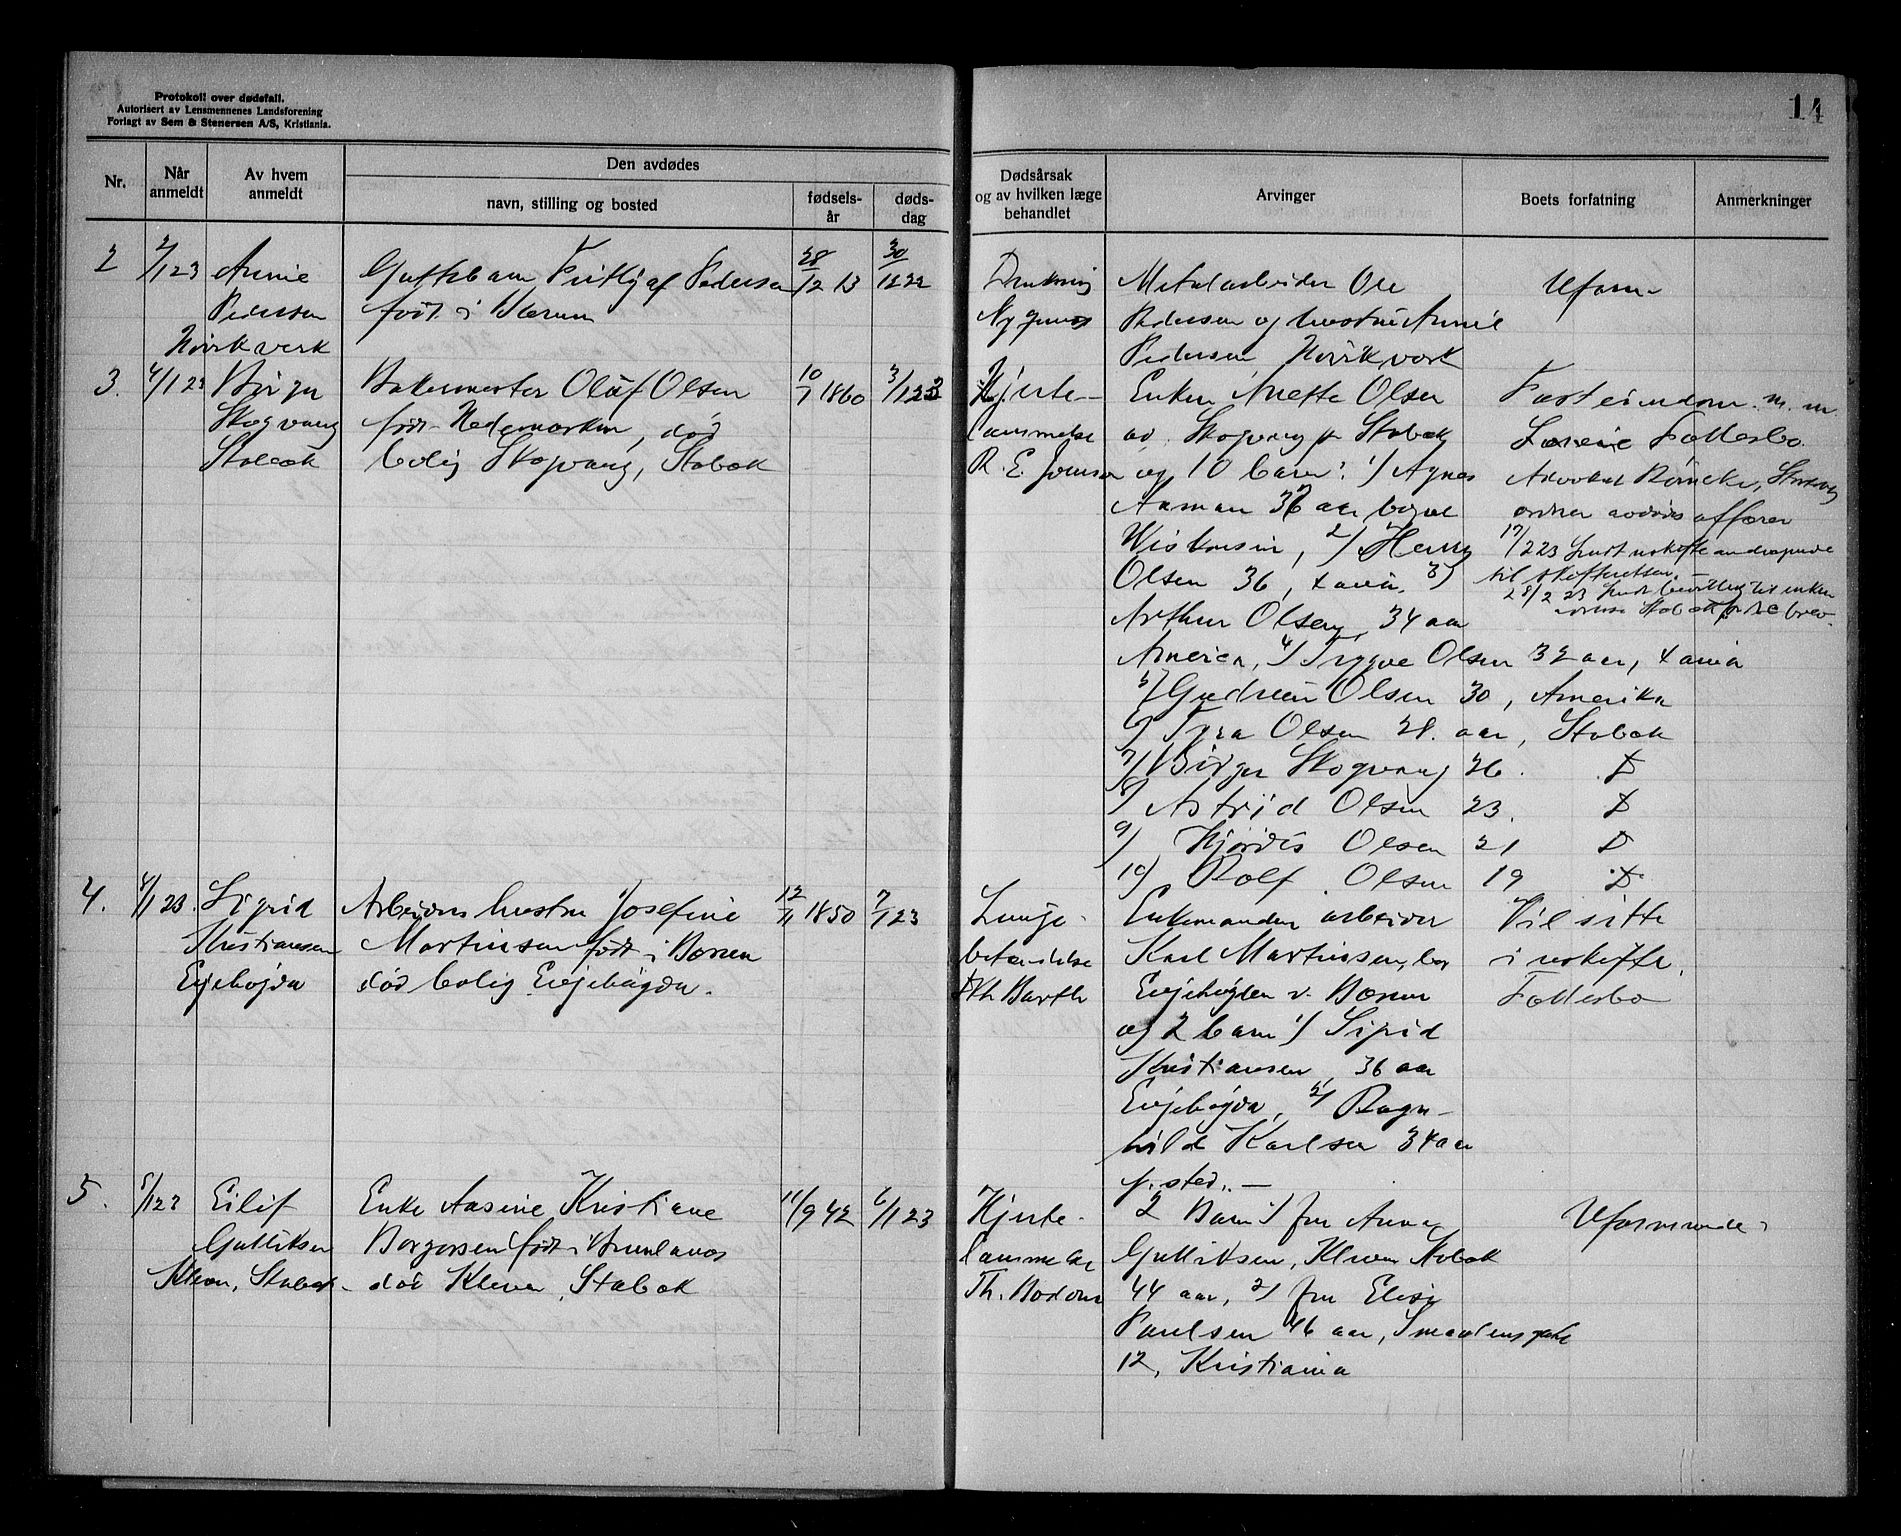 Protokoll over dødsfall.
Autorisert av Lensmennenes Landsforening
Forlagt av Sem & Stenersen A/S, Kristiania.
14
Nr.
Når anmeldt
Av hvem anmeldt
Den avdødes
navn, stilling og bosted
fødselsår
dødsdag
Dødsårsak og av hvilken læge behandlet
Arvinger
Boets forfatning
Anmerkninger
2
2/1 23
Annie
Pedersen
Høvikverk
Guttebarn Fritjof Pedersen
født i Bærum
28/12 13
30/12 22
Drukning
Metalarbeider Ole
Pedersen og hustru Annie
Pedersen Høvikverk
Uform-
3.
4/1 23
Birger
Skogvang
Stabæk
Bakermester Olaf Olsen
født Hedemarken, død
bolig Skogvang, Stabæk
10/7 1860
3/1 23
Hjerte-
lammelse
R. E. Jonson
Enken Anette Olsen
av Skogvang pr Stabæk
og 10 barn: 1) Agnes
Aaman 36 aar
Wiskonsin, 2) Henry
Olsen 36, Xania, 3)
Arthur Olsen, 34 aar
America, 4) Trygve Olsen 32 aar, Xania
5) Gudrun Olsen 30, Amerika
6) Tyra Olsen 28. aar, Stabæk
7) Birger Skogvang 26. D
8) Astrid Olsen 23. D
9) Hjørdis Olsen 21 D
10) Rolf Olsen 19 D
Fast eiendom m. m.
Advokat
ordner avdødes affærer
17/2 23 Sendt uskifte andragende
til skifteretten. -
28/2 23 Sendt bevilling til enken
4.
4/1 23.
Sigrid
Kristiansen
Evjebøgda
Arbeiders hustru Josefine
Martinsen født i Bærum
død bolig Evjebøgda.
12/11 1850
2/1 23
Lunge-
betændelse
Th Barth
Enkemanden arbeider
Karl Martinsen, bor
Evjebøgden v. Bærum
og 2 barn 1) Sigrid
Kristiansen, 36 aar
Evjebøgda, 2) Ragn-
hild Karlsen 34 aar
s. sted. -
Vil sitte
i uskifte.
5.
8/1 23
Eilif
Gulliksen
Kleven, Stabæk.
Enke Aasine Kristiane
Borgersen født i Brunlanes
død Kleven, Stabæk
11/9 42
6/1 23
Hjerte-
lammelse
Th. Bodom
2 Barn 1) fru Anna
Gulliksen, Kleven Stabæk
44 aar, 2) fru Elise
Paulsen 46 aar, Smaalensgate
12, Kristiania
Uformuende